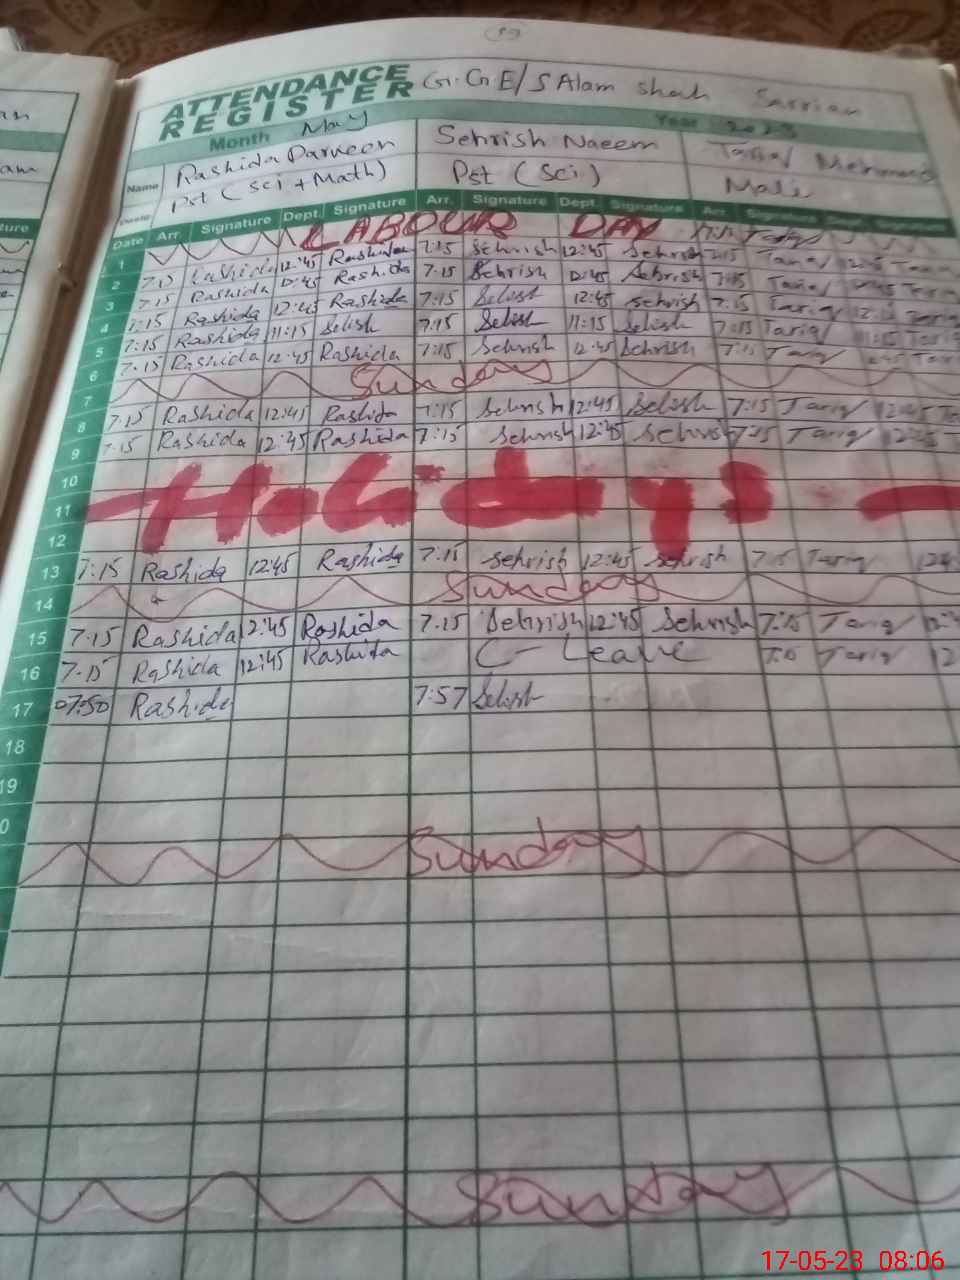 ATTENDANCE REGISTER G.G.E/S Alam shah Sarrian
Month May Year 2023
Name Rashida Parveen Sehrish Naeem Tariq Mehmood
Pst (Sci + Math) Pst (Sci) Mali
Date Arr. Signature Dept. Signature Arr. Signature Dept. Signature Arr. Signature Signature
1 LABOUR DAY
2 7:15 Rashida 12:45 Rashida 7:15 Sehrish 12:45 Sehrish 7:15 Tariq 12:45 Tariq
3 7:15 Rashida 12:45 Rashida 7:15 Sehrish 12:45 Sehrish 7:15 Tariq 12:45 Tariq
4 7:15 Rashida 12:45 Rashida 7:15 12:45 Sehrish 7:15 Tariq
5 7:15 Rashida 11:15 7:15 11:15 7:15 Tariq 11:15
6 7:15 Rashida 12:45 Rashida 7:15 Sehrish 12:45 Sehrish 7:15 Tariq
7 Sunday
8 7:15 Rashida 12:45 Rashida 7:15 Sehrish 12:45 7:15 Tariq 12:45
9 7:15 Rashida 12:45 Rashida 7:15 Sehrish 12:45 Sehrish 7:15 Tariq
10
11 Holidays
12
13 7:15 Rashida 12:45 Rashida 7:15 Sehrish 12:45 Sehrish 7:15 Tariq
14 Sunday
15 7:15 Rashida 12:45 Rashida 7:15 Sehrish 12:45 Sehrish 7:15 Tariq
16 7:15 Rashida 12:45 Rashida C-Leave Tariq
17 07:50 Rashida 7:57
18
19
0
Sunday
Sunday
17-05-23 08:06